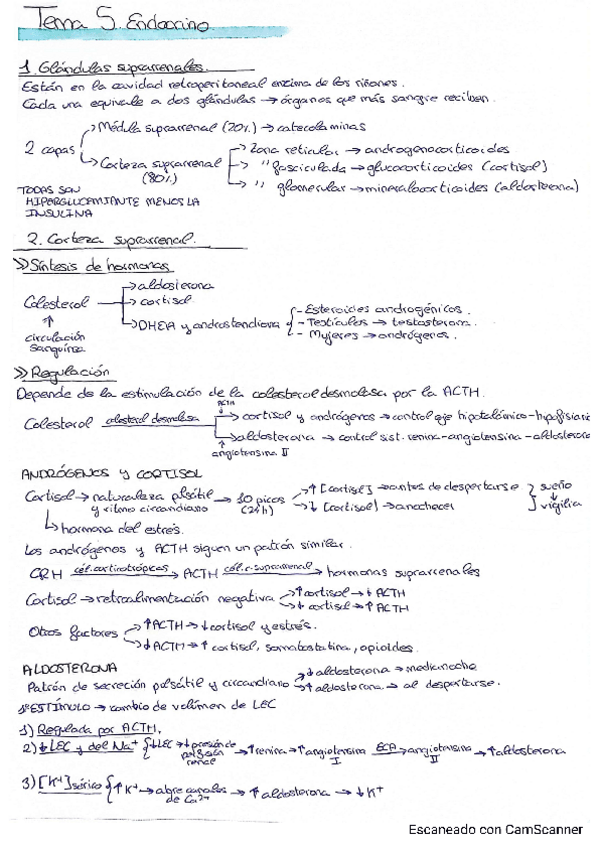 Tema 5. Endocrino
1. Glándulas suprarrenales.
Están en la cavidad retroperitoneal encima de los riñones.
Cada una equivale a dos glándulas → órganos que más sangre reciben.
2 capas → Médula suprarrenal (20%) → catecolaminas
→ Corteza suprarrenal (80%) → Zona reticular → androgenocorticoides
→ " fasciculada → glucocorticoides (cortisol)
→ " glomerular → mineralocorticoides (aldosterona)
TODAS SON
HIPERGLUCEMIANTE MENOS LA
INSULINA
2. Corteza suprarrenal.
>> Síntesis de hormonas
Colesterol → aldosterona
→ cortisol
→ DHEA y androstendiona { - Esteroides androgénicos.
- Testículos → testosterona.
- Mujeres → andrógenos.
↑
circulación
sanguínea
>> Regulación
Depende de la estimulación de la colesterol desmolasa por la ACTH.
ACTH
Colesterol colesterol desmolasa → cortisol y andrógenos → control eje hipotalámico-hipofisiario
→ aldosterona → control sist. renina-angiotensina-aldosterona
angiotensina II
ANDRÓGENOS Y CORTISOL
Cortisol → naturaleza pulsátil y ritmo circandiano → 10 picos (24h) → ↑ [cortisol] → antes de despertarse } sueño
→ ↓ [cortisol] → anochecer } vigilia
↳ hormona del estrés.
Los andrógenos y ACTH siguen un patrón similar.
CRH cél. corticotrópicas → ACTH cél. c. suprarrenal → hormonas suprarrenales
Cortisol → retroalimentación negativa → ↑ cortisol → ↓ ACTH
→ ↓ cortisol → ↑ ACTH
Otros factores → ↑ ACTH → ↓ cortisol y estrés.
→ ↓ ACTH → ↑ cortisol, somatostatina, opioides.
ALDOSTERONA
Patrón de secreción pulsátil y circandiano → ↓ aldosterona → medianoche
→ ↑ aldosterona → al despertarse.
1º ESTÍMULO → cambio de volúmen de LEC
1) Regulada por ACTH.
2) ↓ LEC y del Na+ { ↓ LEC → ↓ presión de perfusión renal → ↑ renina → ↑ angiotensina I ECA → angiotensina II → ↑ aldosterona
3) [K+] sérico { ↑ K+ → abre canales de Ca2+ → ↑ aldosterona → ↓ K+
Escaneado con CamScanner